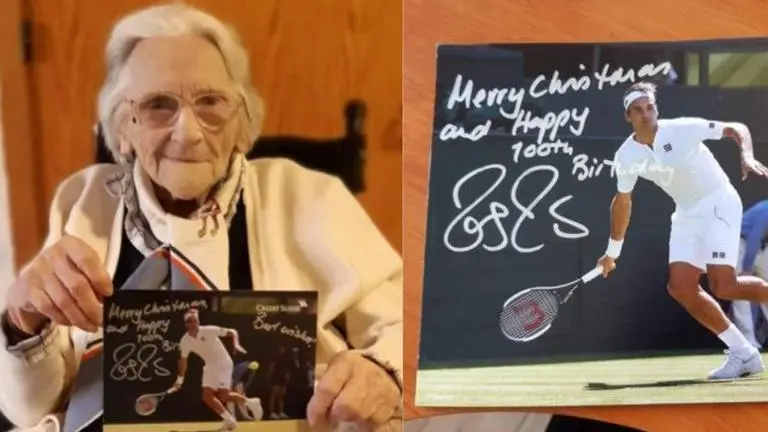 Merry Christmas
and Happy
100th Birth
CREDIT SUISSE
Best wishes
Merry Christmas
and Happy
100th
Birthday